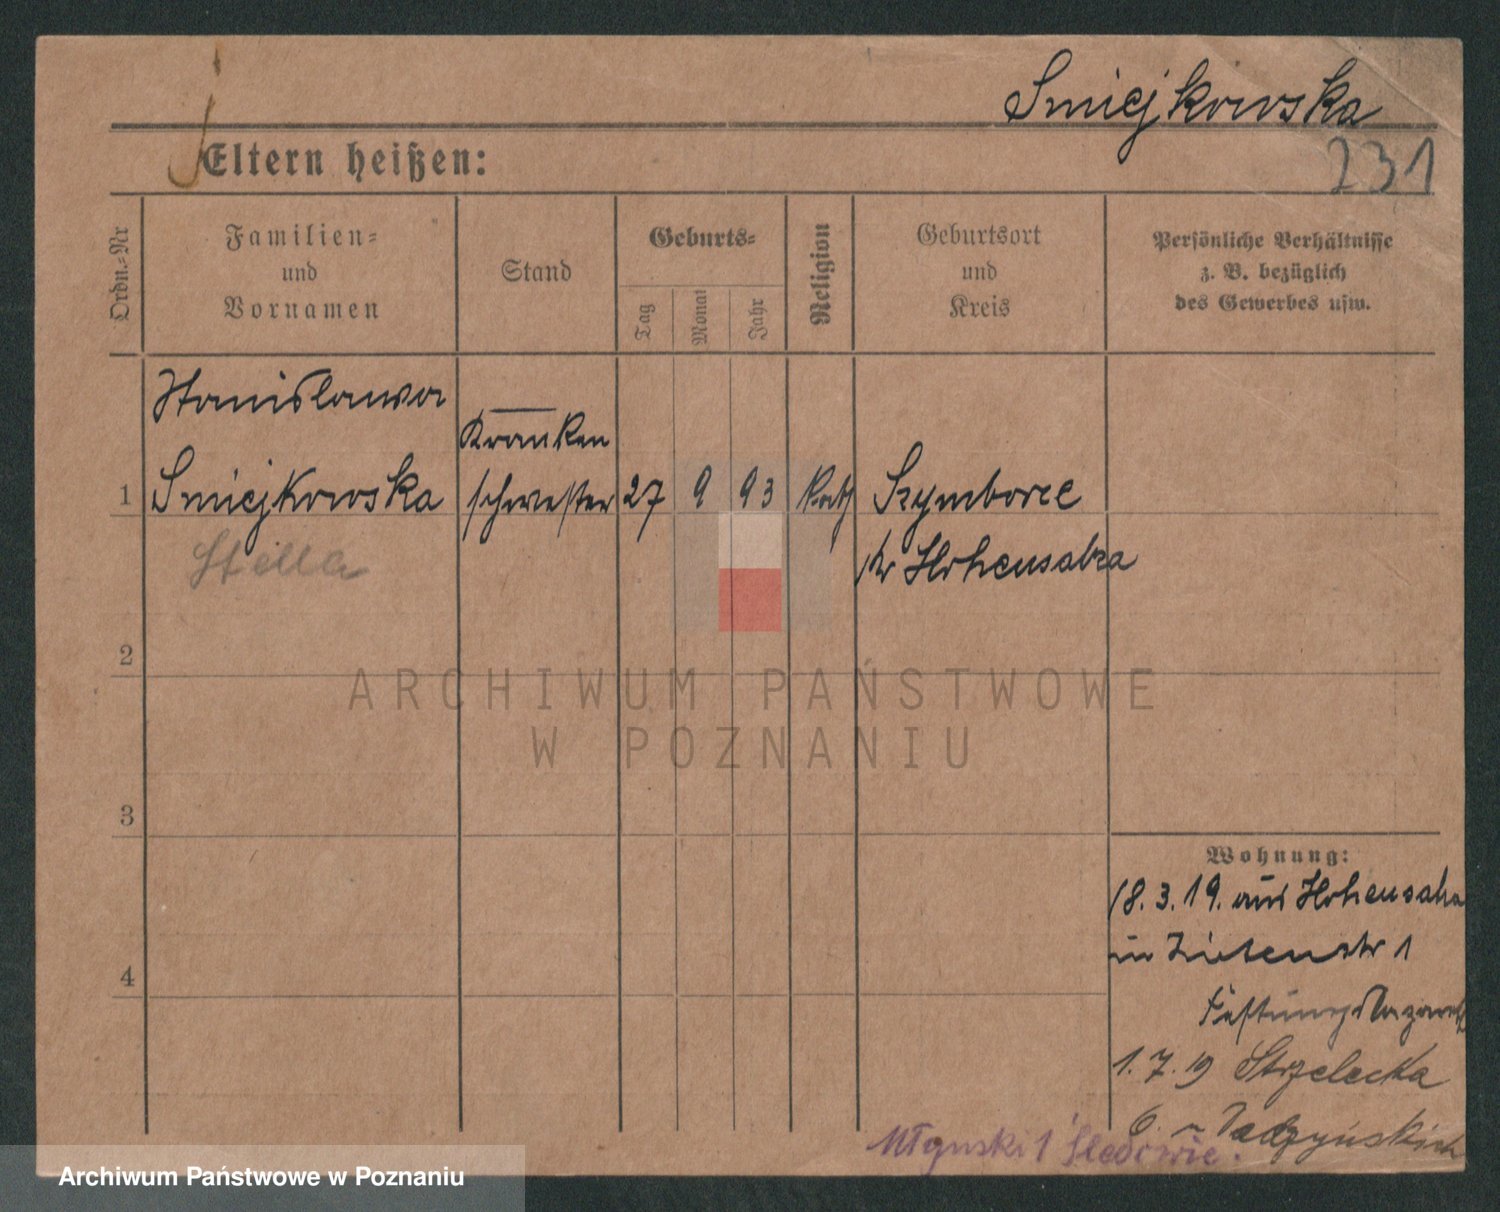 Smiejkowska
231
Eltern heißen:
Ordn.-Nr
Familien-
und
Vornamen
Stand
Geburts-
Tag
Monat
Jahr
Religion
Geburtsort
und
Kreis
Persönliche Verhältnisse
z. B. bezüglich
des Gewerbes usw.
Stanislawa
Kranken
1 Smiejkowska schwester 27 9 93 kath Szymborze
Stella
kr Hohensalza
2
ARCHIWUM PAŃSTWOWE
W POZNANIU
3
4
Wohnung:
18.3.19. aus Hohensalza
in Zietenstr 1
Festungslazarett
1.7.19 Strzelecka
6.
Archiwum Państwowe w Poznaniu